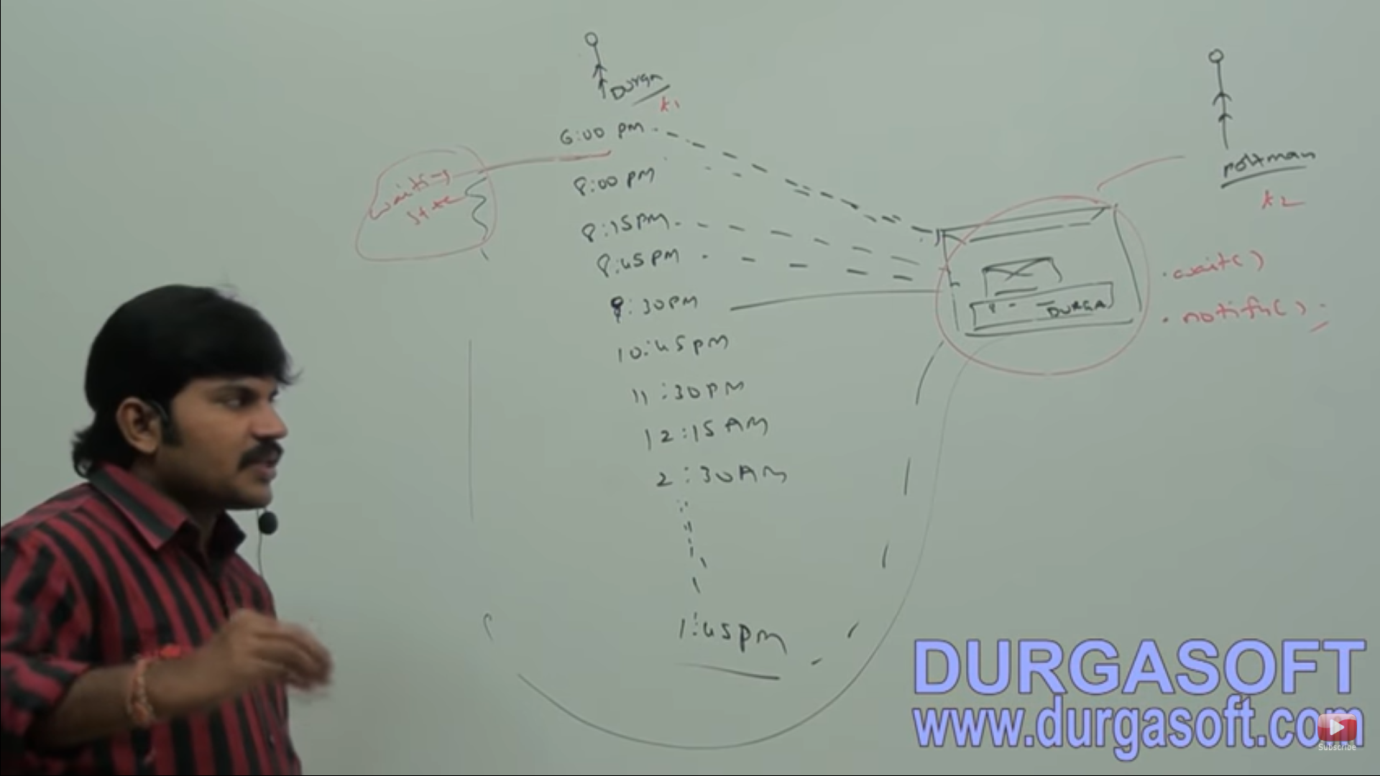 DURGA
t1
6:00 PM
8:00 PM
8:15PM
8:45PM
9:30PM
10:45PM
11:30PM
12:15AM
2:30AM
1:45PM
waiting
state
postman
t2
DURGA
.wait()
.notify()
DURGASOFT
www.durgasoft.com
Subscribe